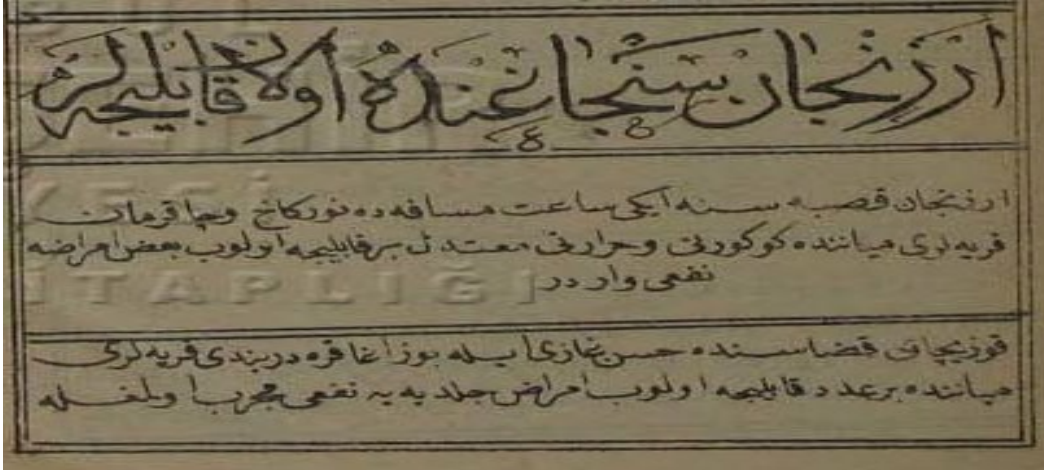 ارزنجان سنجاغنده اولان قابليجه لر
ارزنجان قصبه سنه ايكی ساعت مسافه ده نوركاخ وچاقرمان
قريه لری مياننده كوكوردلی وحرارتی معتدل برقابليجه اولوب بعض امراضه
نفعی واردر
قوزيچان قضاسنده حسن غازی ايله بوزاغا قره دربندی قريه لری
مياننده برعدد قابليجه اولوب امراض جلديه يه نفعی مجرب اولمغله
İTAPLIĞI